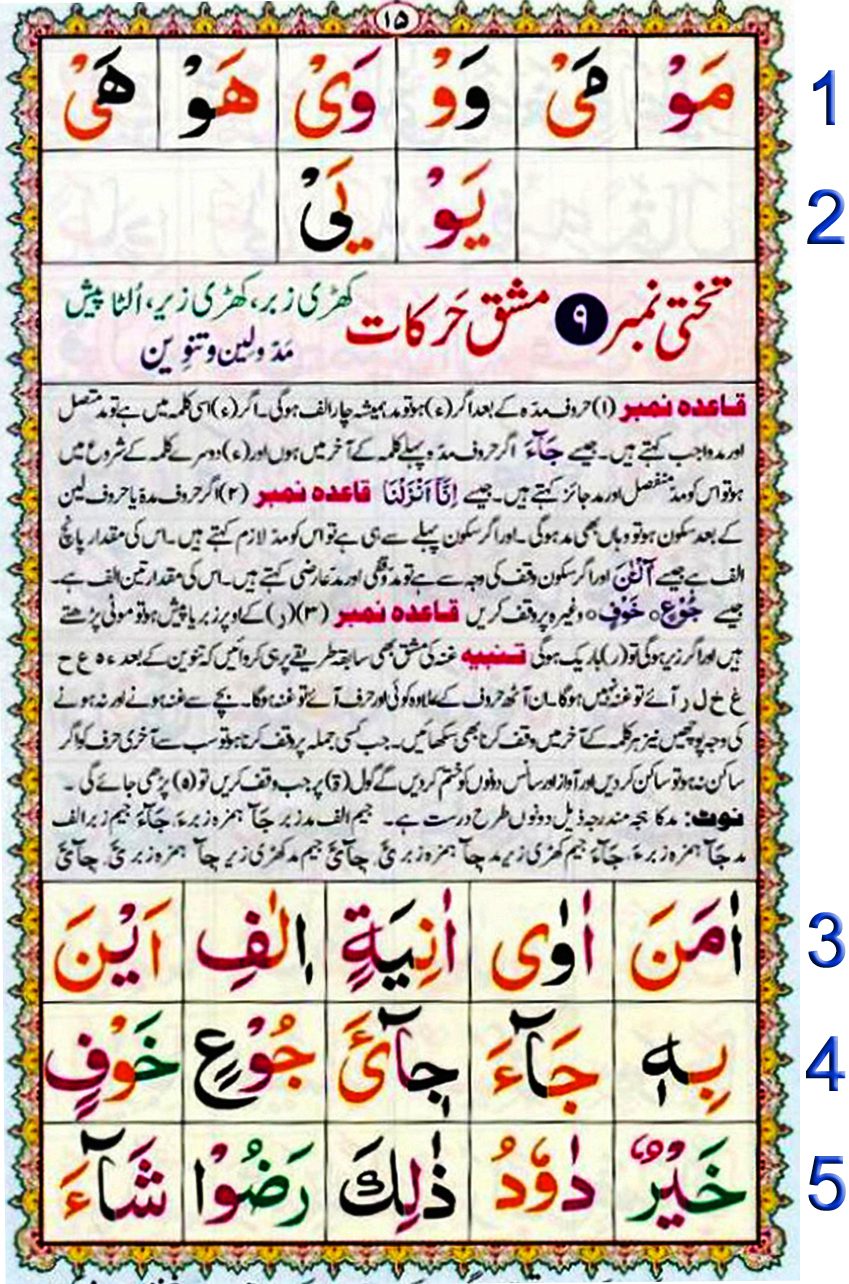 ۱۵
مَوْ مَیْ وَوْ وَیْ هَوْ هَیْ 1
یَوْ یَیْ 2
تختی نمبر ۹ مشق حَرکات کھڑی زبر، کھڑی زیر، اُلٹا پیش
مَدّ ولین وتنوین
قاعدہ نمبر (۱) حروف مدّہ کے بعد اگر (ء) ہو تو مد ہمیشہ چار الف ہوگی۔ اگر (ء) اسی کلمہ میں ہے تو مد متصل
اور مد واجب کہتے ہیں۔ جیسے جَآءَ اگر حروف مدّہ پہلے کلمہ کے آخر میں ہوں اور (ء) دوسرے کلمہ کے شروع میں
ہو تو اس کو مدّ منفصل اور مد جائز کہتے ہیں۔ جیسے اِنَّآ اَنْزَلْنَا قاعدہ نمبر (۲) اگر حروف مدہ یا حروف لین
کے بعد سکون ہو تو وہاں بھی مد ہوگی۔ اور اگر سکون پہلے سے ہی ہے تو اس کو مدّ لازم کہتے ہیں۔ اس کی مقدار پانچ
الف ہے جیسے آلْـٰٔنَ اور اگر سکون وقف کی وجہ سے ہے تو مد وقفی اور مد عارضی کہتے ہیں۔ اس کی مقدار تین الف ہے۔
جیسے جُوْعٍ ○ خَوْفٍ ○ وغیرہ پر وقف کریں قاعدہ نمبر (۳) (ر) کے اوپر زبر یا پیش ہو تو موٹی پڑھتے
ہیں اور اگر زیر ہوگی تو (ر) باریک ہوگی تنبیہ غنہ کی مشق بھی سابقہ طریقے پر ہی کروائیں کہ تنوین کے بعد ء ہ ع ح
غ خ ل ر آئے تو غنہ نہیں ہوگا۔ ان آٹھ حروف کے علاوہ کوئی اور حرف آئے تو غنہ ہوگا۔ بچے سے غنہ ہونے اور نہ ہونے
کی وجہ پوچھیں نیز ہر کلمہ کے آخر میں وقف کرنا بھی سکھائیں۔ جب کسی جملہ پر وقف کرنا ہو تو سب سے آخری حرف کو اگر
ساکن نہ ہو تو ساکن کر دیں اور آواز اور سانس دونوں کو ختم کر دیں گے گول (ۃ) پر جب وقف کریں تو (ہ) پڑھی جائے گی۔
نوٹ: مد کا ہجہ مندرجہ ذیل دونوں طرح درست ہے۔ جیم الف مد زبر جآ ہمزہ زبر ءَ، جَآءَ جیم زبر الف
مد جَآ ہمزہ زبر ءَ، جَآءَ جیم کھڑی زیر مد جآ ہمزہ زبر ئَ، جآئَ جیم مد کھڑی زیر جآ ہمزہ زبر ئَ، جآئَ
اٰمَنَ اٰوٰی اٰنِیَةٍ اِلٰفِ اَیْنَ 3
بِهٖ جَآءَ جِآیْٓئَ جُوْعٍ خَوْفٍ 4
خَیْرٌ دَاوٗدُ ذٰلِكَ رَضُوْا شَآءَ 5